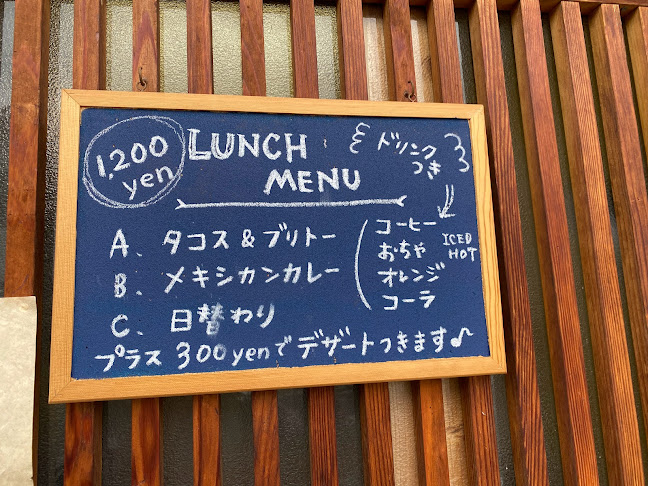 1,200 yen
LUNCH MENU
ドリンクつき
A、タコス&ブリトー
B、メキシカンカレー
C、日替わり
コーヒー
おちゃ
オレンジ
コーラ
ICED
HOT
プラス300yenでデザートつきます♪